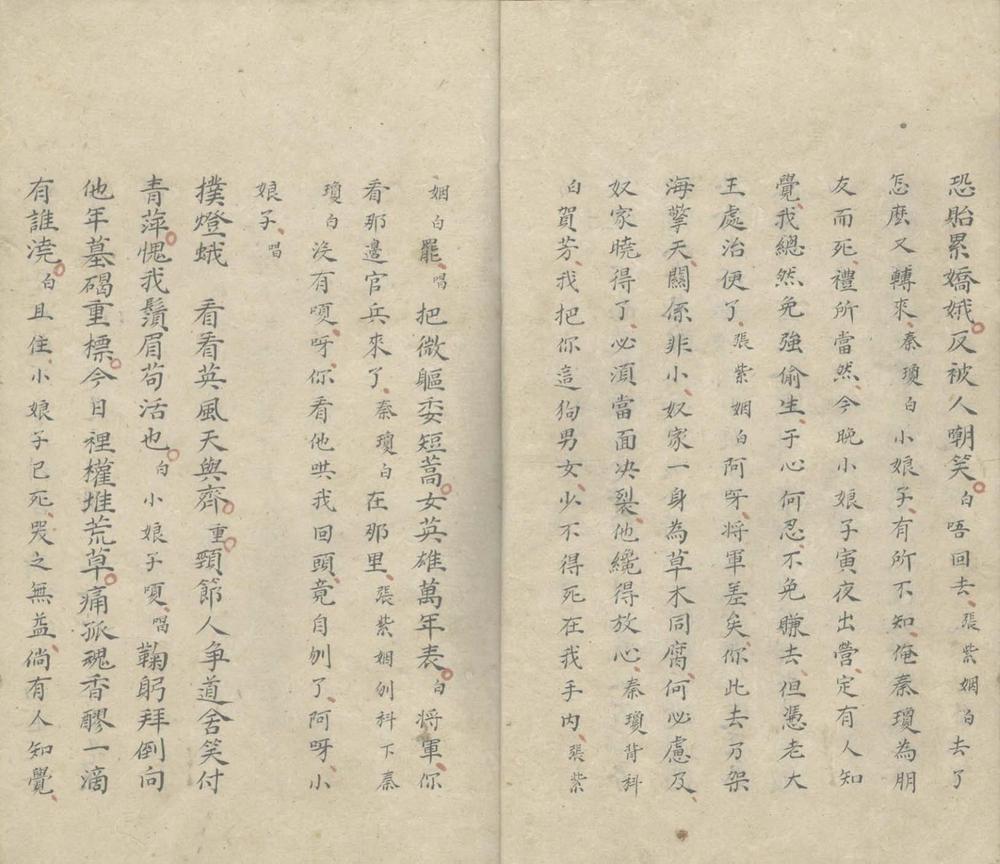 恐貽累嬌娥反被人嘲笑白唔回去張紫姻白去了
怎麽又轉來秦瓊白小娘子有所不知俺秦瓊為朋
友而死禮所當然今晚小娘子寅夜出營定有人知
覺我總然免強偷生于心何忍不免賺去但憑老大
王處治便了張紫姻白阿呀將軍差矣你此去乃架
海擎天關係非小奴家一身為草木同腐何必慮及
奴家曉得了必須當面决裂他纔得放心秦瓊背科
白賀芳我把你這狗男女少不得死在我手内張紫
姻白罷唱把微軀委短蒿女英雄萬年表白將軍你
看那邊官兵來了秦瓊白在那里張紫姻刎科下秦
瓊白沒有嗄呀你看他哄我回頭竟自刎了阿呀小
娘子唱
撲燈蛾 看看英風天與齊重頸節人争道含笑付
青萍愧我鬚眉苟活也白小娘子嗄唱鞠躬拜倒向
他年墓碣重標今日裡權堆荒草痛孤魂香醪一滴
有誰澆白且住小娘子已死哭之無益倘有人知覺